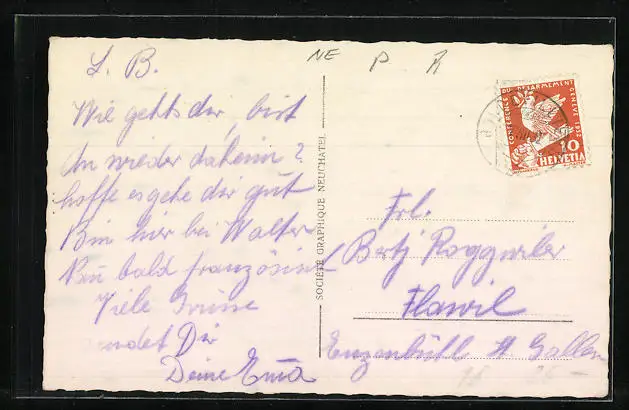 L. B.
Wie gehts dir, bist
du wieder daheim?
hoffe es gehe dir gut
Bin hier bei Walter
bald französin
Viele Grüsse
sendet Dir
Deine Ema
NE P R
SOCIÉTÉ GRAPHIQUE NEUCHATEL
CONFERENCE DU DESARMEMENT GENEVE 1932
10
HELVETIA
Frl.
Bertj Roggwiler
Flawil
Enzenbühl St. Gallen